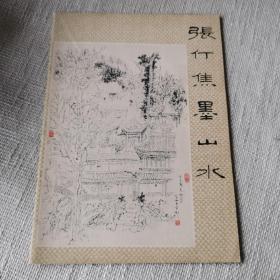 張仃焦墨山水